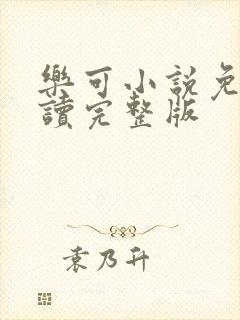 樂可小説免
讀完整版
袁乃升